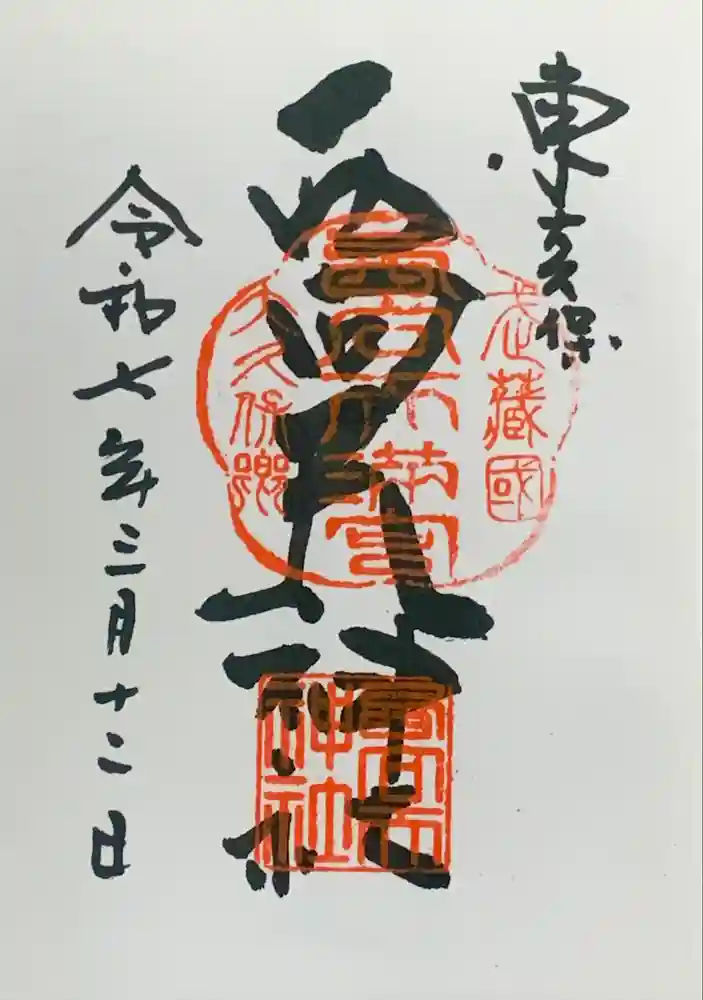 東大久保
西向天神社
令和七年三月十二日
武藏國
西向天満宮
大久保郷
神社